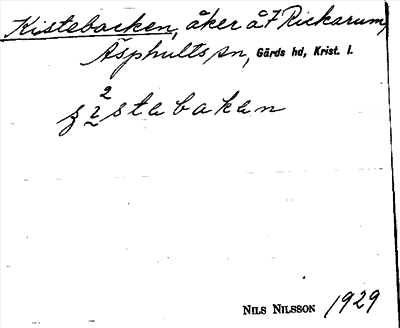 Kistebacken, åker å 7 Rickarum,
Äsphults sn, Gärds hd, Krist. l.
2
stabakan
NILS NILSSON 1929